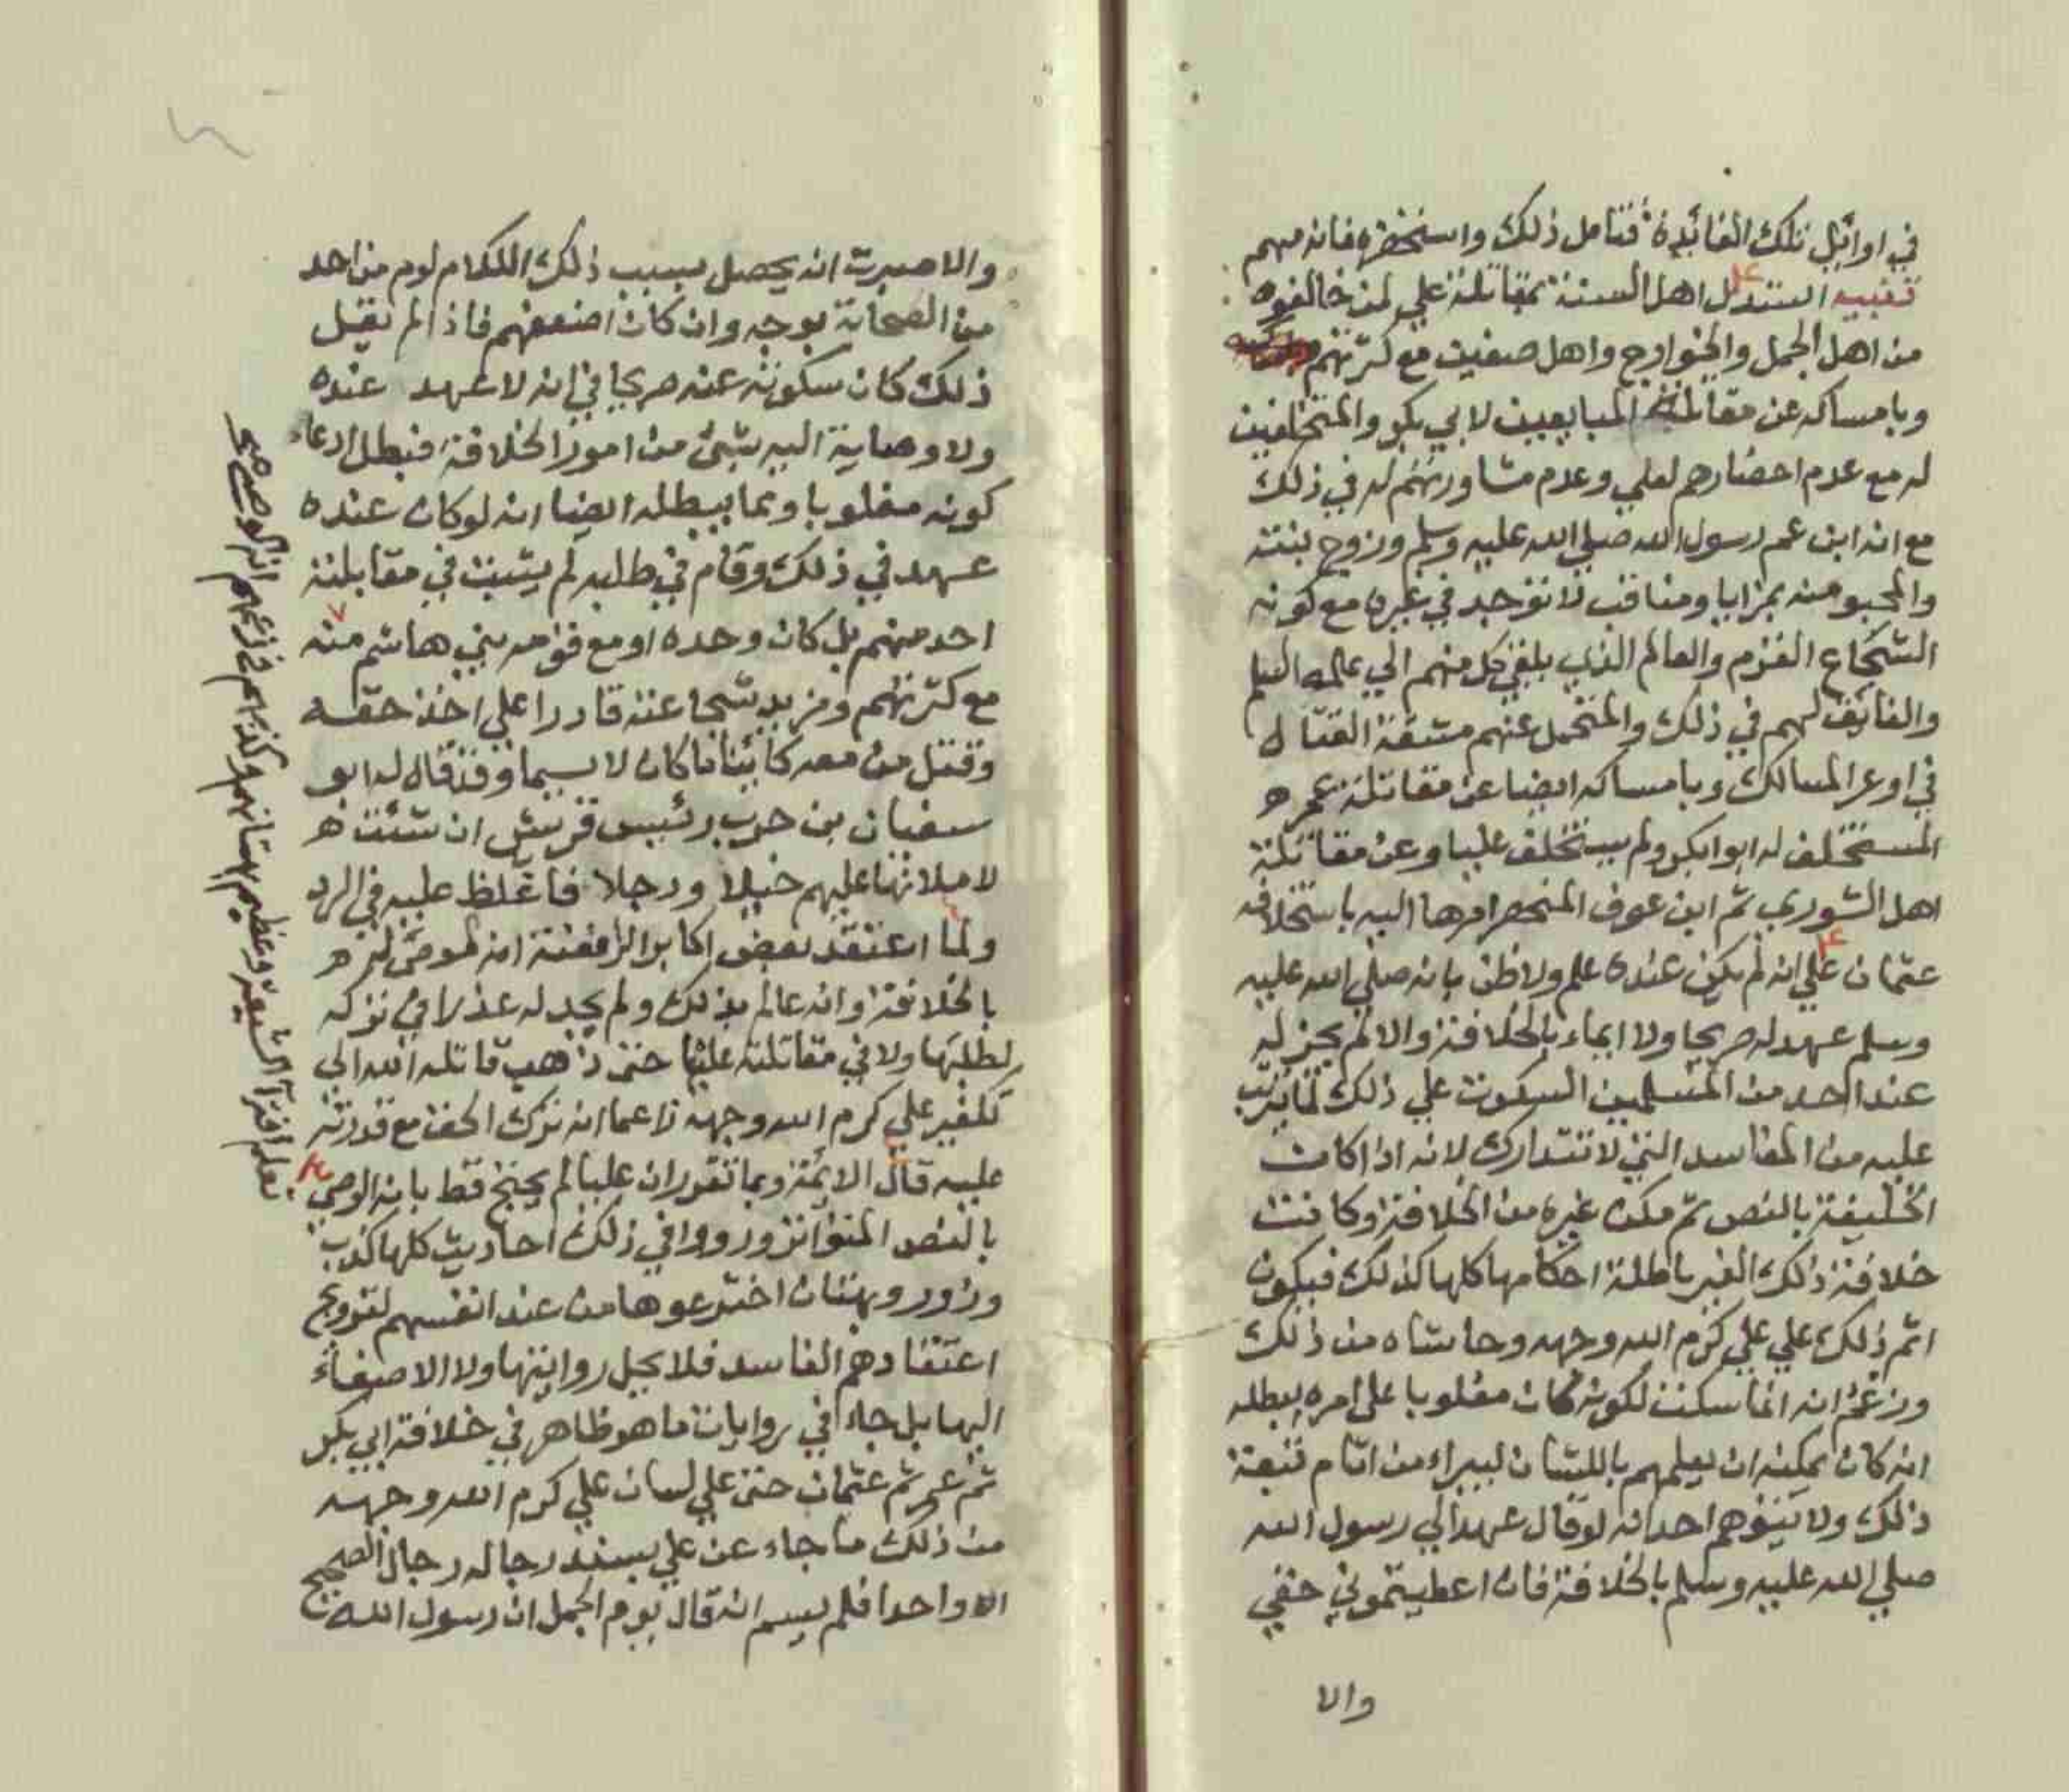 في اوائل تلك الفائدة فتامل ذلك واستحضره فانه مهم
تنبيه استدل اهل السنة بمقاتلة علي لمن خالفوه
من اهل الجمل والخوارج واهل صفين مع كثرتهم
وبامساكه عن مقاتلة المبايعين لابي بكر والمتخلفين
له مع عدم احضارهم لعلي وعدم مشاورتهم له في ذلك
مع انه ابن عم رسول الله صلي الله عليه وسلم وزوج بنته
والمحبو منه بمزايا ومناقب لا توجد في غيره مع كونه
الشجاع القرم والعالم الذي يلقي كل منهم الي علمه السلم
والفائق لهم في ذلك والمتحمل عنهم مشقة القتال
في اوعر المسالك وبامساكه ايضا عن مقاتلة عمر ه
المستخلف له ابوا بكر ولم يستخلف عليا وعن مقاتلة
اهل الشوري ثم ابن عوف المنحصر امرها اليه باستخلافه
عثمان علي انه لم يكن عنده علم ولا ظن بانه صلي الله عليه
وسلم عهد له صريحا ولا ايماء بالخلافة والا لم يجز له
عند احد من المسلمين السكوت علي ذلك لما يترتب
عليه من المفاسد التي لا تتدارك لانه اذا كان
الخليفة بالنص ثم مكن غيره من الخلافة وكانت
خلافة ذلك الغير باطلة احكامها كلها كذلك فيكون
اثم ذلك علي علي كرم الله وجهه وحاشاه من ذلك
وزعم انه انما سكت لكونه كان مغلوبا على امره يبطله
انه كان يمكنه ان يعلمهم باللسان ليبراء من اثام تبعة
ذلك ولا يتوهم احد انه لو قال عهد الي رسول الله
صلي الله عليه وسلم بالخلافة فان اعطيتموني حقي
والا
والا صبرت انه يحصل بسبب ذلك الكلام لوم من احد
من الصحابة بوجه وان كان اضعفهم فاذا لم يقل
ذلك كان سكوته عنه صريحا في انه لا عهد عنده
ولا وصاية اليه بشئ من امور الخلافة فبطل ادعاء
كونه مغلوبا ومما يبطله ايضا انه لو كان عنده
عهد في ذلك وقام في طلبه لم يثبت في مقابلته
احد منهم بل كان وحده او مع قومه بني هاشم منه
مع كثرتهم ومزيد شجاعته قادرا علي اخذ حقه
وقتل من معه كائنا ما كان لا سيما وقد قال له ابو
سفيان بن حرب رئيس قريش ان شئت ه
لاملانها عليهم خيلا ورجلا فاغلظ عليه في الرد
ولما اعتقد بعض اكابر الرافضة انه الموصى له ه
بالخلافة وانه عالم بذلك ولم يجد له عذرا في تركه
لطلبها ولا في مقاتلته عليها حتى ذهب قاتله الله الي
تكفير علي كرم الله وجهه زاعما انه ترك الحق مع قدرته
عليه قال الائمة ومما تقرر ان عليا لم يحتج قط بانه الوصي
بالنص المتواتر ورووا في ذلك احاديث كلها كذب
وزور وبهتان اخترعوها من عند انفسهم لترويج
اعتقادهم الفاسد فلا يحل روايتها ولا الاصغاء
اليها بل جاء في روايات ما هو ظاهر في خلافة ابي بكر
ثم عمر ثم عثمان حتى علي لسان علي كرم الله وجهه
من ذلك ما جاء عن علي بسند رجاله رجال الصحيح
الا واحدا فلم يسم انه قال يوم الجمل ان رسول الله
يعلم افتراء الشيعة وعظيم بهتانهم وكذبهم في زعمهم انه الوصي صح